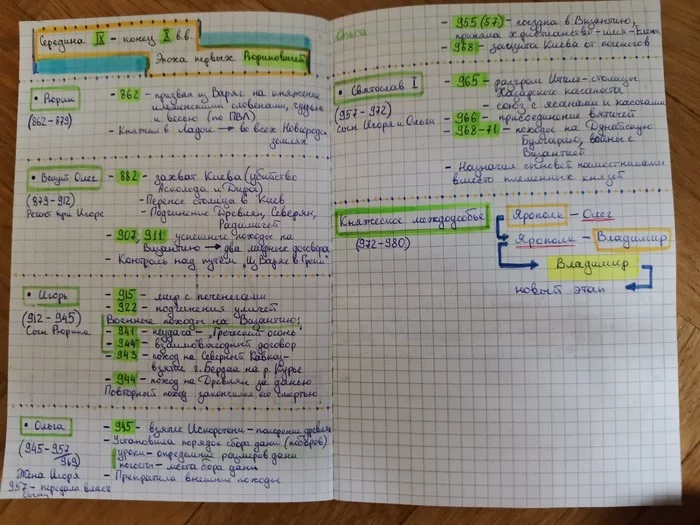 Середина IX - конец X в.в.
Эпоха первых Рюриковичей
• Рюрик
(862-879)
- 862 - призван из Варяг на княжение
ильменскими словенами, чудью
и весью (по ПВЛ)
- Княжил в Ладоге → во всех Новгородских
землях
• Вещий Олег
(879-912)
Регент при Игоре
- 882 - захват Киева (убийство
Аскольда и Дира)
- Перенос столицы в Киев
- Подчинение Древлян, Северян,
Радимичей
- 907, 911 успешные походы на
Византию → два мирных договора
- Контроль над путём "Из Варяг в Греки"
• Игорь
(912-945)
Сын Рюрика
- 915 - мир с печенегами
- 922 - подчинения уличей
Военные походы на Византию:
- 941 - неудача - "Греческий огонь"
- 944 - взаимовыгодный договор
- 943 - поход на Северный Кавказ -
взятие г. Бердаа на р. Курье
- 944 - поход на Древлян за данью
Повторный поход закончился его смертью
• Ольга
(945-957
969)
Жена Игоря
957 - передала власть
сыну
- 945 - взятие Искоростени - покорение древлян
- Установила порядок сбора дани (повозов)
уроки - определение размеров дани
погосты - места сбора дани
- Прекратила внешние походы
Ольга
- 955 (57) - поездка в Византию,
приняла христианство - имя - Елена
- 968 - защита Киева от печенегов
• Святослав I
(957-972)
сын Игоря и Ольги
- 965 - разгром Итиля - столицы
Хазарского каганата
- союз с ясами и касогами
- 966 - присоединение вятичей
- 968-71 - походы на Дунайскую
Булгарию, войны с
Византией
- Назначил сыновей наместниками
вместо племенных князей
Княжеское междоусобье
(972-980)
Ярополк - Олег
Ярополк - Владимир
Владимир
новый этап